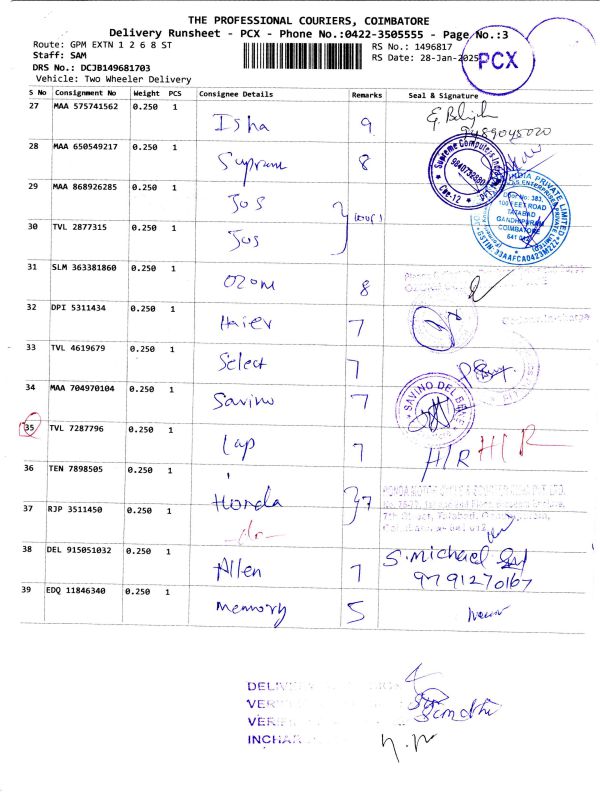 THE PROFESSIONAL COURIERS, COIMBATORE
Delivery Runsheet - PCX - Phone No.:0422-3505555 - Page No.:3
Route: GPM EXTN 1 2 6 8 ST
RS No.: 1496817
Staff: SAM
RS Date: 28-Jan-2025
PCX
DRS No.: DCJB149681703
Vehicle: Two Wheeler Delivery
S No Consignment No Weight PCS Consignee Details Remarks Seal & Signature
27 MAA 575741562 0.250 1 Isha 9
9489045020
28 MAA 650549217 0.250 1 Supreme 8
Supreme Computers
9840732880
Cbe-12
29 MAA 868926285 0.250 1 Jos
INDIA PRIVATE LIMITED
Door No: 383,
100 FEET ROAD
TATABAD
GANDHIPURAM
COIMBATORE
641 012
GSTIN: 33AAFCA0423M2ZZ
30 TVL 2877315 0.250 1 Jos
31 SLM 363381860 0.250 1 Ozone 8
32 DPI 5311434 0.250 1 Haier 7
33 TVL 4619679 0.250 1 Select 7
34 MAA 704970104 0.250 1 Savino 7
SAVINO DEL BENE
35 TVL 7287796 0.250 1 Lap 7 H/R H/R
36 TEN 7898505 0.250 1 Honda 7
37 RJP 3511450 0.250 1 -dr-
38 DEL 915051032 0.250 1 Allen 7 S.Michael
9791270167
39 EDQ 11846340 0.250 1 Memory 5
DELIV
VERI
VERIF
INCHAR